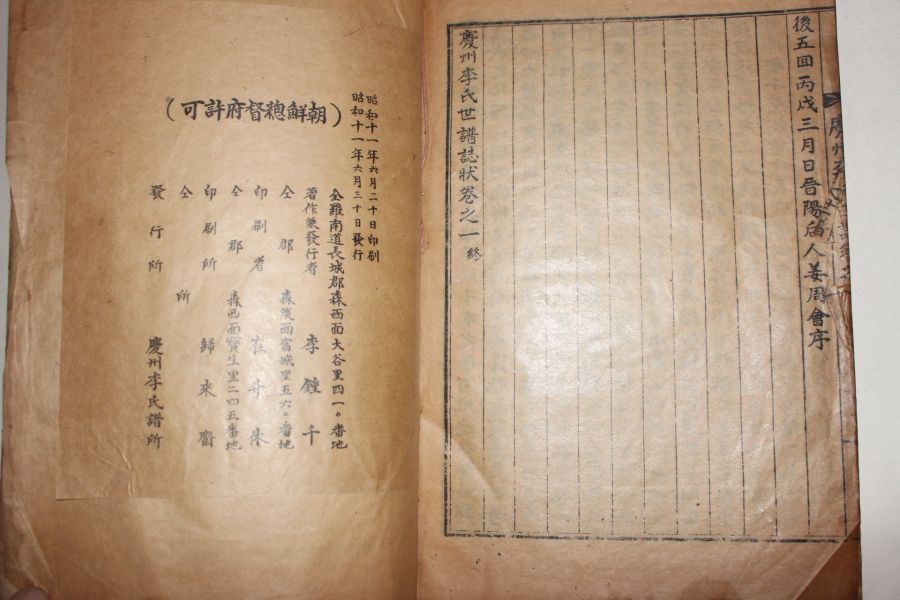 後五回丙戌三月日晋陽后人姜周會序
慶州李氏世譜誌狀卷之一 終
昭和十一年六月二十日印刷
昭和十一年六月三十日發行
(朝鮮總督府許可)
仝羅南道長城郡森西面大谷里四一〇番地
著作兼發行者 李鍾千
仝郡 森溪面富城里五六〇番地
印刷者 崔 朱
仝郡 森西面寶生里二四五番地
印刷所 歸來齋
仝所
發行所 慶州李氏譜所